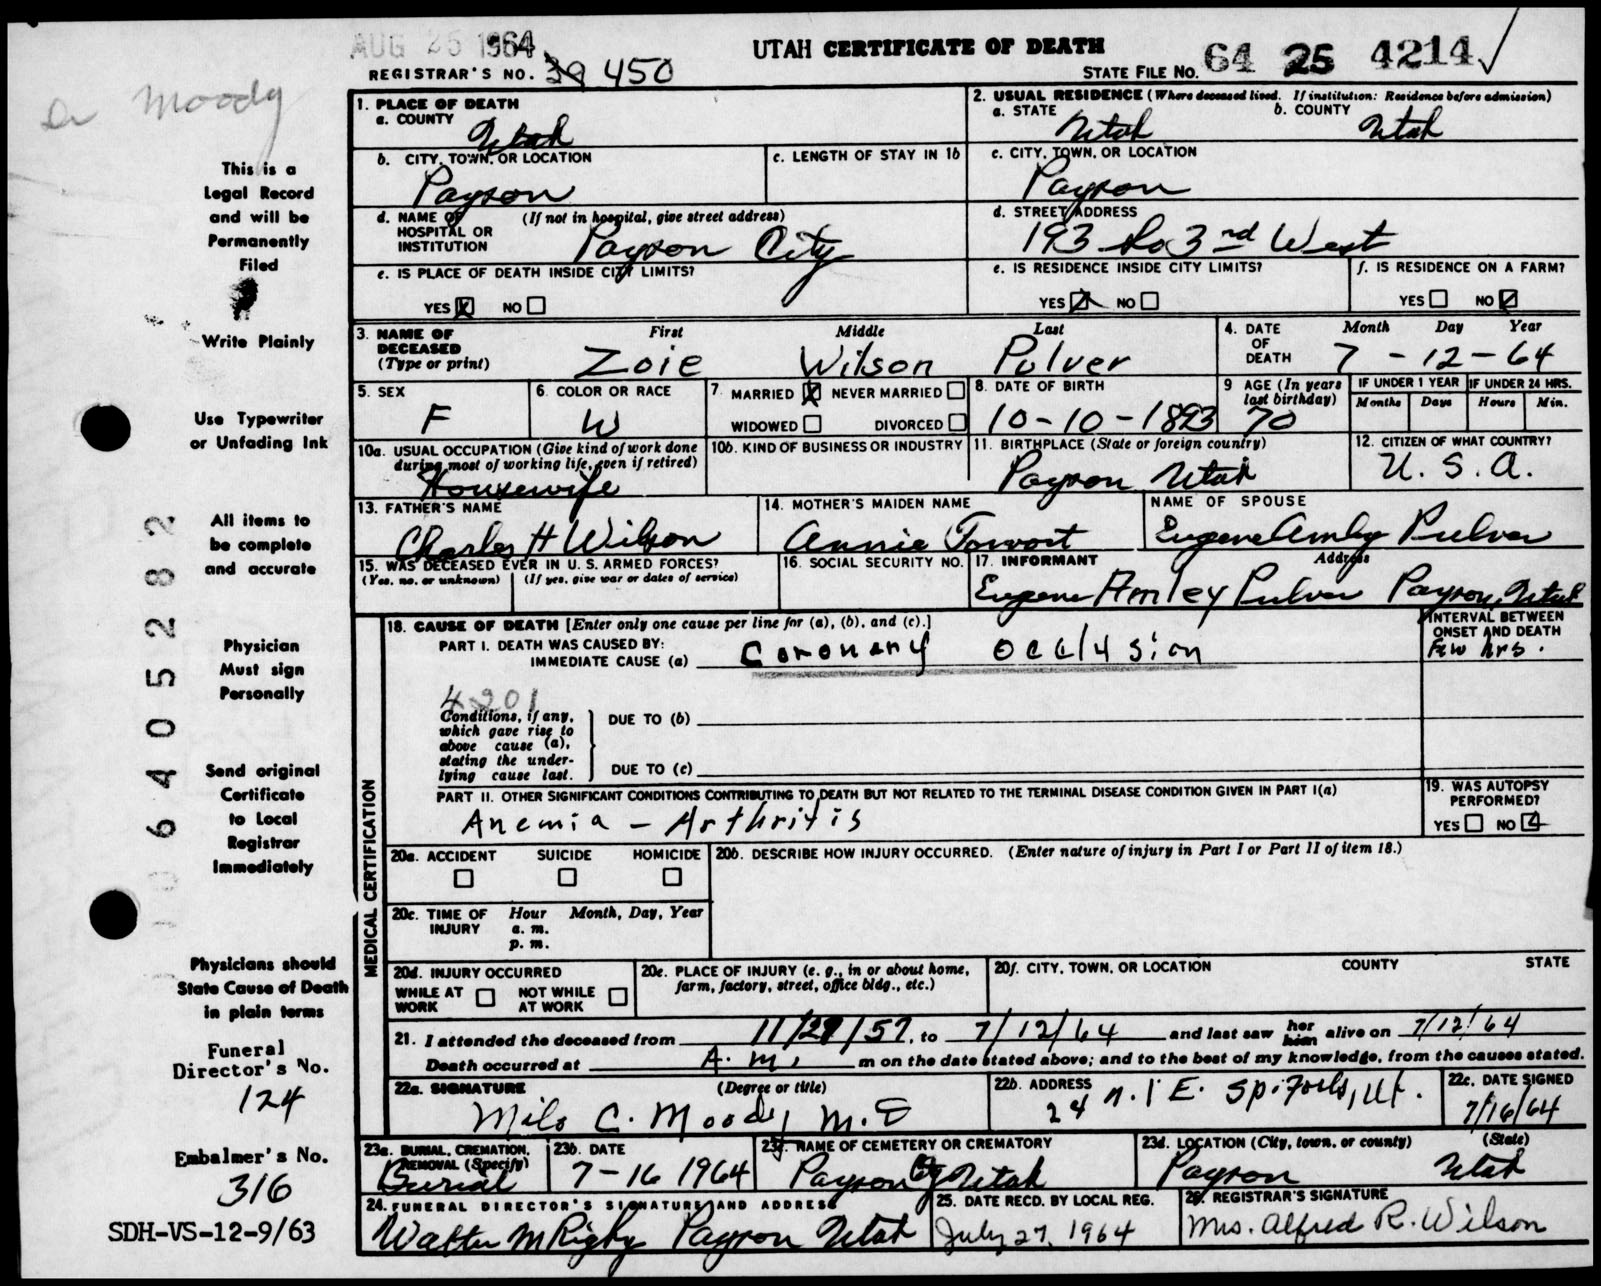 AUG 25 1964
UTAH CERTIFICATE OF DEATH
REGISTRAR'S NO. 39 450
STATE FILE NO. 64 25 4214
Dr Moody
This is a
Legal Record
and will be
Permanently
Filed
Write Plainly
Use Typewriter
or Unfading Ink
All items to
be complete
and accurate
Physician
Must sign
Personally
Send original
Certificate
to Local
Registrar
Immediately
Physicians should
State Cause of Death
in plain terms
Funeral
Director's No.
124
Embalmer's No.
316
SDH-VS-12-9/63
06405282
1. PLACE OF DEATH
a. COUNTY
Utah
2. USUAL RESIDENCE (Where deceased lived. If institution: Residence before admission)
a. STATE b. COUNTY
Utah Utah
b. CITY, TOWN, OR LOCATION
Payson
c. LENGTH OF STAY IN 1b
c. CITY, TOWN, OR LOCATION
Payson
d. NAME OF HOSPITAL OR INSTITUTION (If not in hospital, give street address)
Payson City
d. STREET ADDRESS
193 So 3nd West
e. IS PLACE OF DEATH INSIDE CITY LIMITS?
YES X NO
e. IS RESIDENCE INSIDE CITY LIMITS?
YES NO
f. IS RESIDENCE ON A FARM?
YES NO
3. NAME OF DECEASED (Type or print)
First Middle Last
Zoie Wilson Pulver
4. DATE OF DEATH
Month Day Year
7 - 12 - 64
5. SEX
F
6. COLOR OR RACE
W
7. MARRIED X NEVER MARRIED
WIDOWED DIVORCED
8. DATE OF BIRTH
10-10-1893
9 AGE (In years last birthday)
70
IF UNDER 1 YEAR IF UNDER 24 HRS.
Months Days Hours Min.
10a. USUAL OCCUPATION (Give kind of work done during most of working life, even if retired)
Housewife
10b. KIND OF BUSINESS OR INDUSTRY
11. BIRTHPLACE (State or foreign country)
Payson Utah
12. CITIZEN OF WHAT COUNTRY?
U.S.A.
13. FATHER'S NAME
Charles H Wilson
14. MOTHER'S MAIDEN NAME
Annie
NAME OF SPOUSE
Eugene Amley Pulver
15. WAS DECEASED EVER IN U.S. ARMED FORCES?
(Yes, no, or unknown) (If yes, give war or dates of service)
16. SOCIAL SECURITY NO.
17. INFORMANT Address
Eugene Amley Pulver Payson, Utah
MEDICAL CERTIFICATION
18. CAUSE OF DEATH [Enter only one cause per line for (a), (b), and (c).]
PART I. DEATH WAS CAUSED BY:
IMMEDIATE CAUSE (a) Coronary Occlusion
INTERVAL BETWEEN ONSET AND DEATH
Few hrs.
4201
Conditions, if any, which gave rise to above cause (a), stating the underlying cause last.
DUE TO (b)
DUE TO (c)
PART II. OTHER SIGNIFICANT CONDITIONS CONTRIBUTING TO DEATH BUT NOT RELATED TO THE TERMINAL DISEASE CONDITION GIVEN IN PART I(a)
Anemia - Arthritis
19. WAS AUTOPSY PERFORMED?
YES NO
20a. ACCIDENT SUICIDE HOMICIDE
20b. DESCRIBE HOW INJURY OCCURRED. (Enter nature of injury in Part I or Part II of item 18.)
20c. TIME OF INJURY Hour Month, Day, Year
a. m.
p. m.
20d. INJURY OCCURRED
WHILE AT WORK NOT WHILE AT WORK
20e. PLACE OF INJURY (e. g., in or about home, farm, factory, street, office bldg., etc.)
20f. CITY, TOWN, OR LOCATION COUNTY STATE
21. I attended the deceased from 11/29/57, to 7/12/64 and last saw her him alive on 7/12/64
Death occurred at A. M. m on the date stated above; and to the best of my knowledge, from the causes stated.
22a. SIGNATURE (Degree or title)
Milo C. Moody M.D
22b. ADDRESS
24 N. 1 E. Sp. Forks, Ut.
22c. DATE SIGNED
7/16/64
23a. BURIAL, CREMATION, REMOVAL (Specify)
Burial
23b. DATE
7-16 1964
23c. NAME OF CEMETERY OR CREMATORY
Payson City Utah
23d. LOCATION (City, town, or county) (State)
Payson Utah
24. FUNERAL DIRECTOR'S SIGNATURE AND ADDRESS
Walter M Rigby Payson Utah
25. DATE RECD. BY LOCAL REG.
July 27, 1964
26. REGISTRAR'S SIGNATURE
Mrs. Alfred R. Wilson